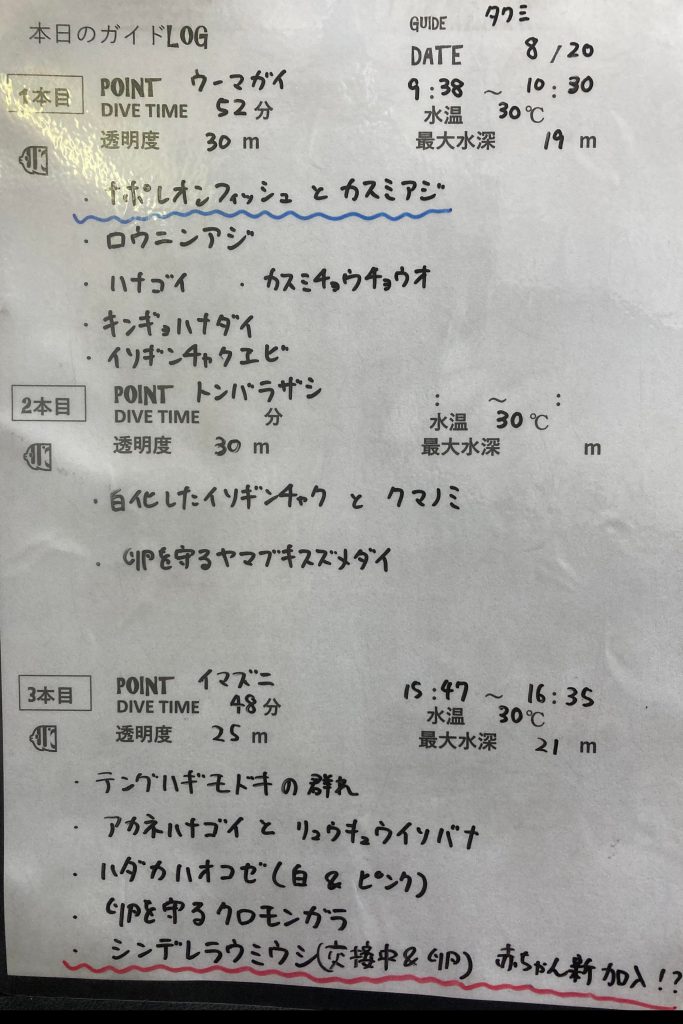 本日のガイドLOG
GUIDE タクミ
DATE 8/20
1本目 POINT ウーマガイ 9:38 ～ 10:30
DIVE TIME 52分 水温 30℃
透明度 30 m 最大水深 19 m
・ナポレオンフィッシュ と カスミアジ
・ロウニンアジ
・ハナゴイ ・カスミチョウチョウオ
・キンギョハナダイ
・イソギンチャクエビ
2本目 POINT トンバラザシ : ～ :
DIVE TIME 分 水温 30℃
透明度 30 m 最大水深 m
・白化したイソギンチャク と クマノミ
・卵を守るヤマブキスズメダイ
3本目 POINT イマズニ 15:47 ～ 16:35
DIVE TIME 48分 水温 30℃
透明度 25 m 最大水深 21 m
・テングハギモドキの群れ
・アカネハナゴイ と リュウキュウイソバナ
・ハダカハオコゼ(白 & ピンク)
・卵を守るクロモンガラ
・シンデレラウミウシ(交接中&卵) 赤ちゃん新加入!?